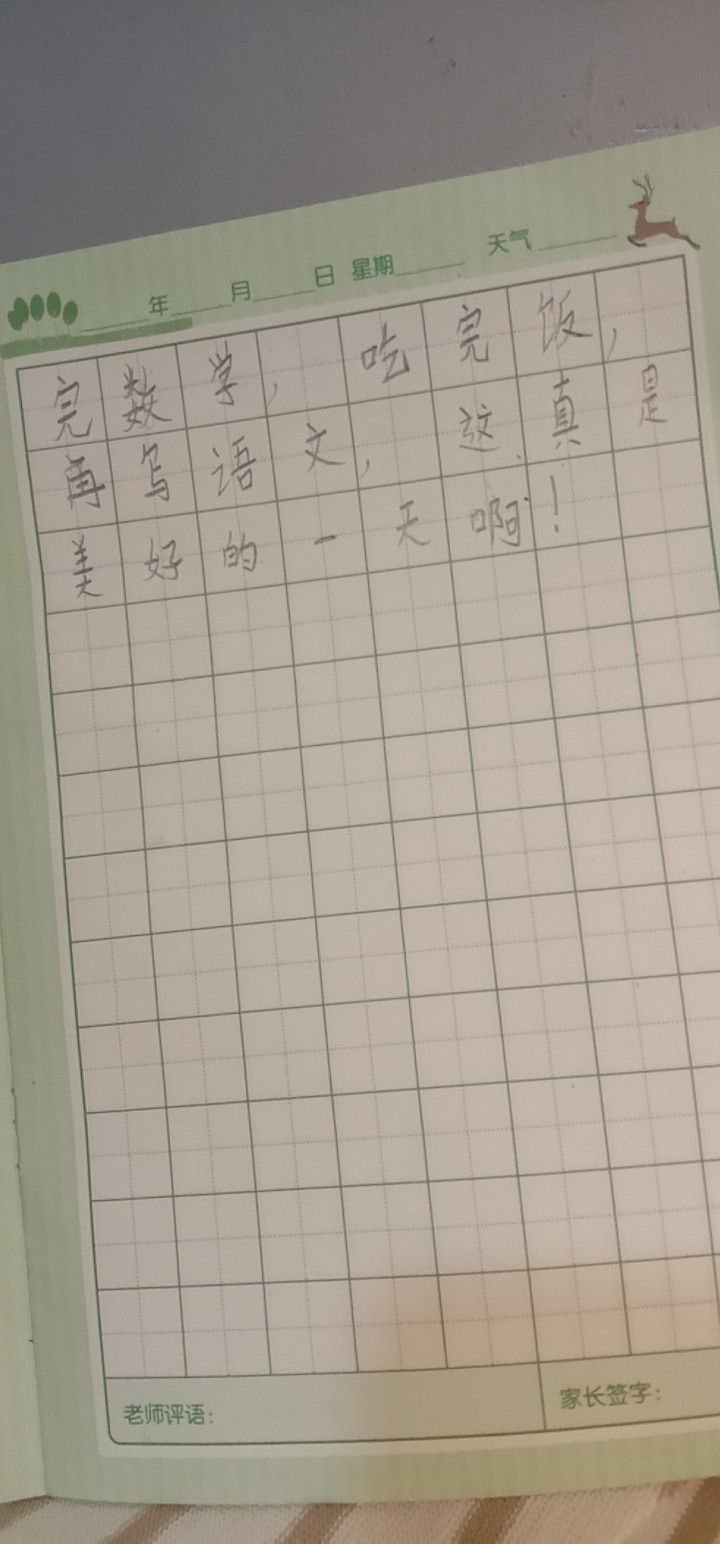 年 月 日 星期 天气
完数学，吃完饭，
再写语文，这真是
美好的一天啊！
老师评语： 家长签字：